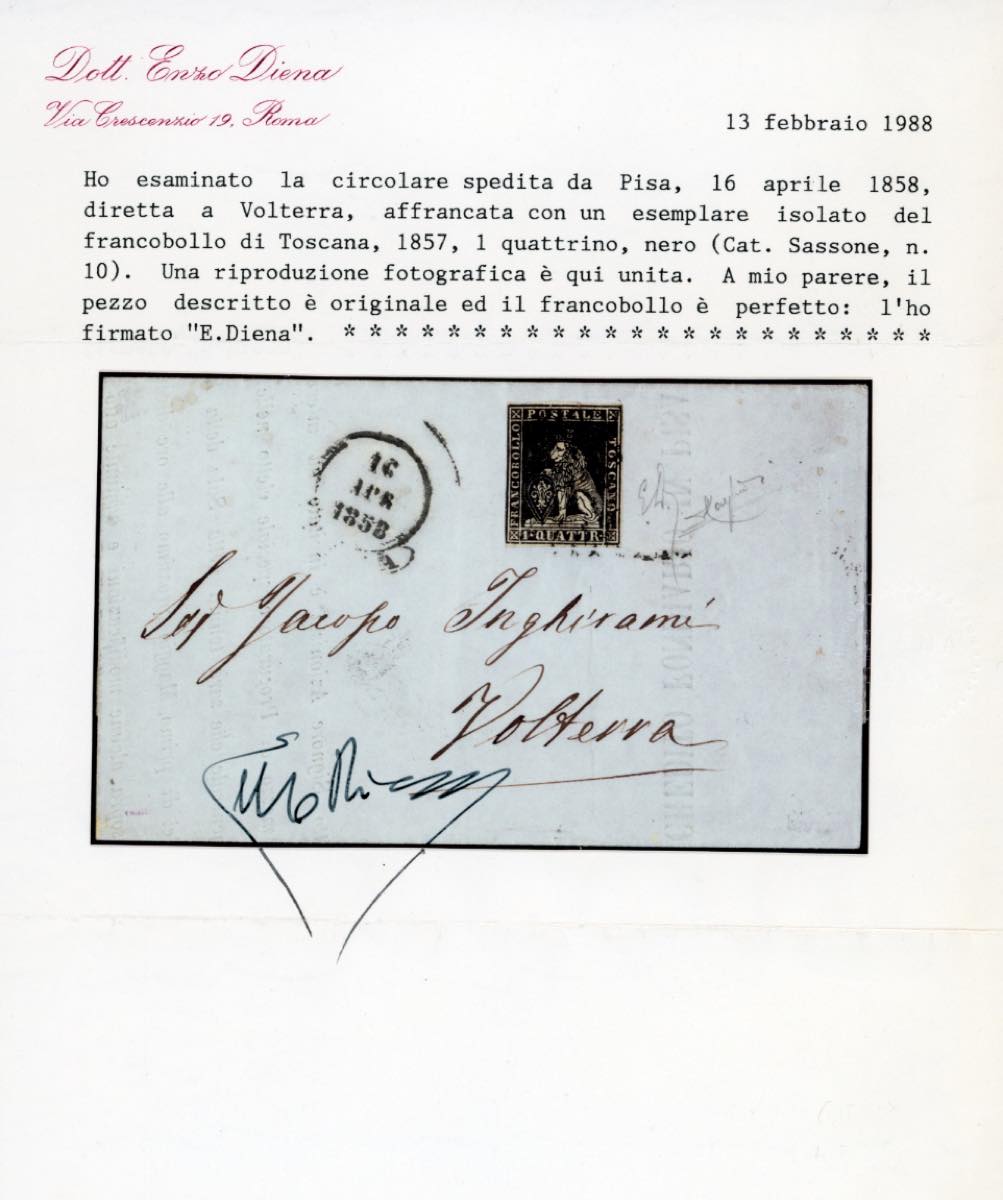 Dott. Enzo Diena
Via Crescenzio 19, Roma
13 febbraio 1988
Ho esaminato la circolare spedita da Pisa, 16 aprile 1858,
diretta a Volterra, affrancata con un esemplare isolato del
francobollo di Toscana, 1857, 1 quattrino, nero (Cat. Sassone, n.
10). Una riproduzione fotografica è qui unita. A mio parere, il
pezzo descritto è originale ed il francobollo è perfetto: l'ho
firmato "E.Diena". * * * * * * * * * * * * * * * * * * * * * * *
16
APR
1858
FRANCOBOLLO
POSTALE
TOSCANO
1·QUATTR
Jacopo Inghirami
Volterra